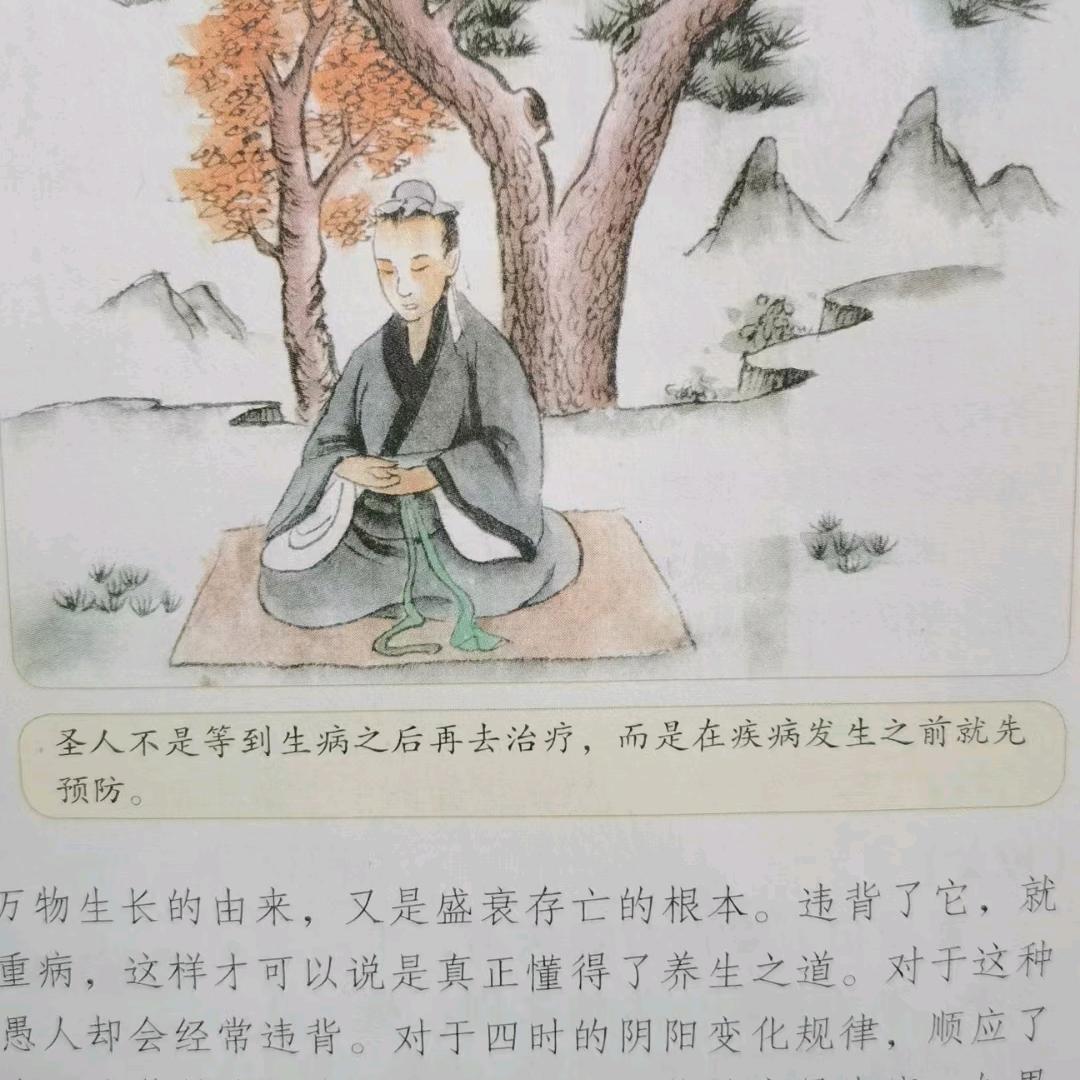 圣人不是等到生病之后再去治疗，而是在疾病发生之前就先
预防。
万物生长的由来，又是盛衰存亡的根本。违背了它，就
重病，这样才可以说是真正懂得了养生之道。对于这种
愚人却会经常违背。对于四时的阴阳变化规律，顺应了